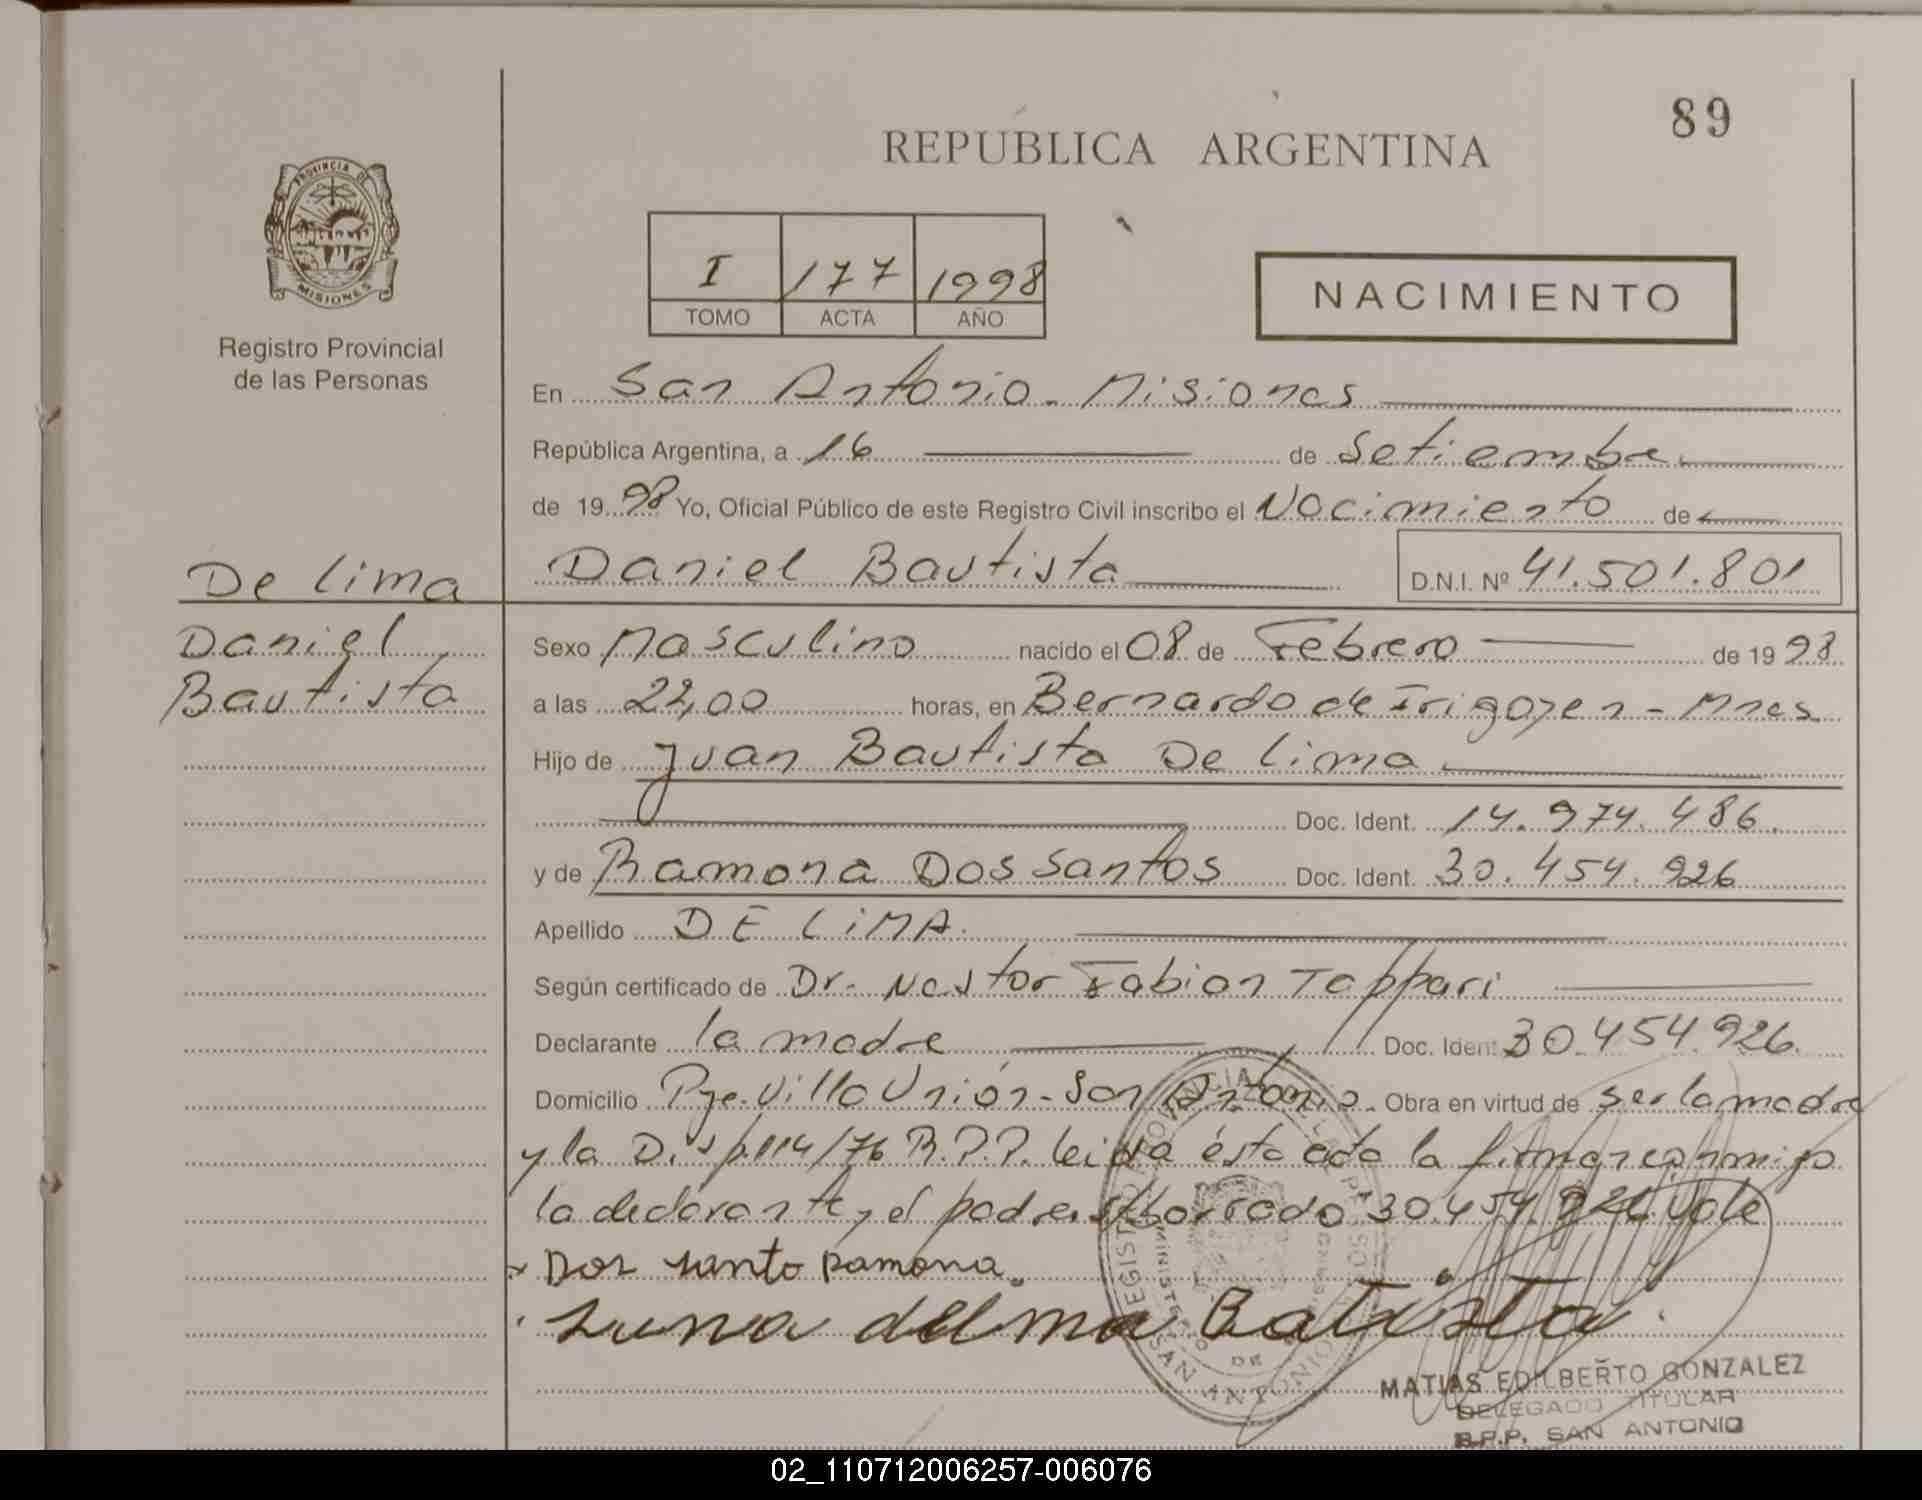 89
REPUBLICA ARGENTINA
PROVINCIA DE
MISIONES
Registro Provincial
de las Personas
I 177 1998
TOMO ACTA AÑO
NACIMIENTO
En San Antonio - Misiones
República Argentina, a 16 de Setiembre
de 19 98 Yo, Oficial Público de este Registro Civil inscribo el Nacimiento de
De lima
Daniel Bautista D.N.I. Nº 41.501.801
Daniel
Bautista
Sexo Masculino nacido el 08 de Febrero de 19 98
a las 22,00 horas, en Bernardo de Irigoyen - Mnes
Hijo de Juan Bautista De lima
Doc. Ident. 14.974.486.
y de Ramona Dos Santos Doc. Ident. 30.454.926
Apellido DE LiMA.
Según certificado de Dr. Nestor Fabian Tappari
Declarante la madre Doc. Ident. 30.454.926.
Domicilio Pje. Villa Unión - San Antonio. Obra en virtud de ser la madre
y la Disp. 114/76 R.P.P. leida ésta acta la firman conmigo
la declarante y el padre. s/borrado 30.454.926 Vale
x Dos santo Ramona.
Batista
MATIAS EDILBERTO GONZALEZ
DELEGADO TITULAR
R.P.P. SAN ANTONIO
SAN ANTONIO
02_110712006257-006076